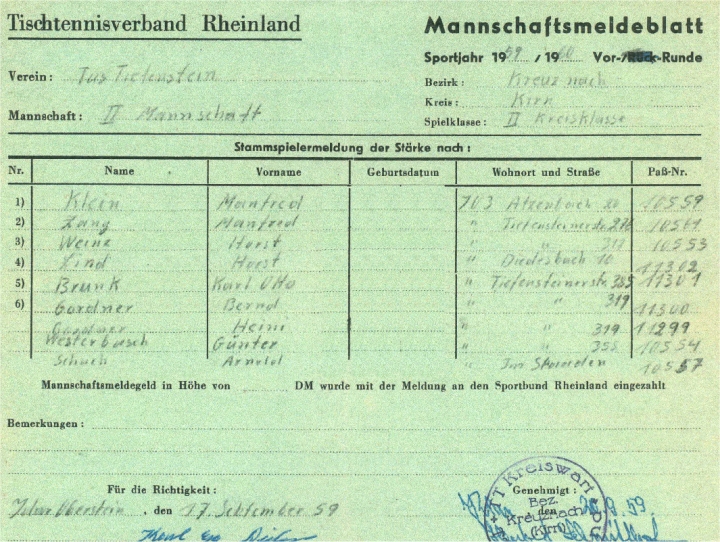 Tischtennisverband Rheinland
Mannschaftsmeldeblatt
Sportjahr 1959 / 1960 Vor-/Rück-Runde
Verein: Tus Tiefenstein
Bezirk: Kreuznach
Kreis: Kirn
Mannschaft: II Mannschaft
Spielklasse: II Kreisklasse
Stammspielermeldung der Stärke nach:
Nr. Name Vorname Geburtsdatum Wohnort und Straße Paß-Nr.
1) Klein Manfred 703 Atzenbach 20 10559
2) Zang Manfred " Tiefensteinerstr. 10561
3) Weinz Horst " " 317 10553
4) Zind Horst " Diedesbach 10 11302
5) Brunk Karl Otto " Tiefensteinerstr 385 11301
6) Gordner Bernd " " 319 11300
Gordner Heini " 319 11299
Westerbusch Günter " " 355 10554
Schuch Arnold " Im 10557
Mannschaftsmeldegeld in Höhe von DM wurde mit der Meldung an den Sportbund Rheinland eingezahlt
Bemerkungen:
Für die Richtigkeit:
Genehmigt:
Idar Oberstein, den 17. September 59
den .59.
TT Kreiswart
Bez.
Kreuznach
(Kirn)